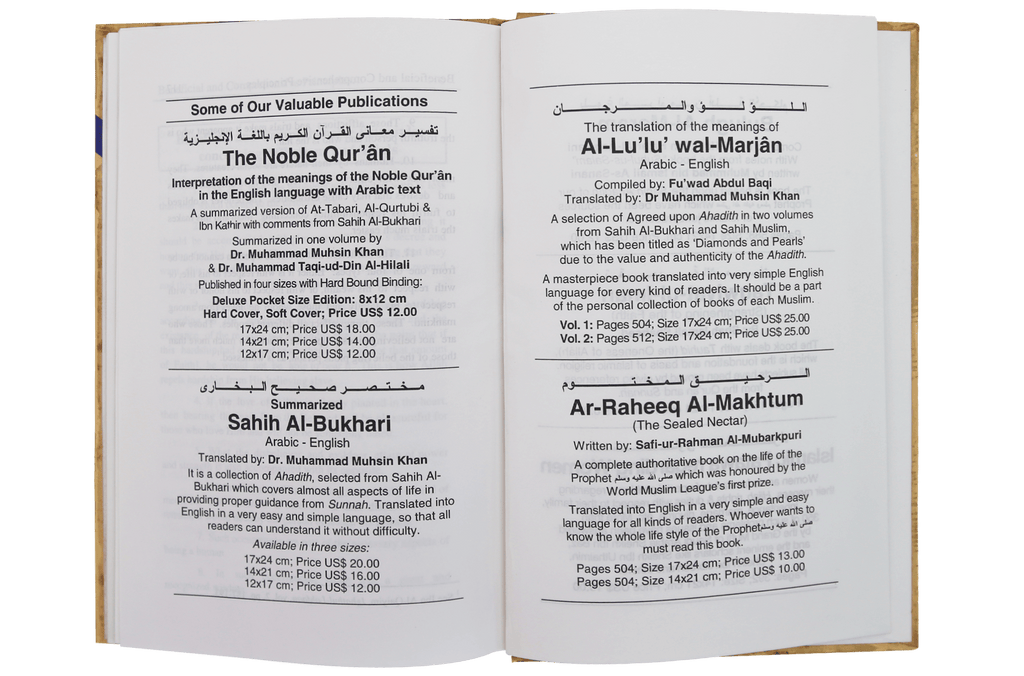 Some of Our Valuable Publications
تفسير معانى القرآن الكريم باللغة الإنجليزية
The Noble Qur'ân
Interpretation of the meanings of the Noble Qur'ân
in the English language with Arabic text
A summarized version of At-Tabari, Al-Qurtubi &
Ibn Kathir with comments from Sahih Al-Bukhari
Summarized in one volume by
Dr. Muhammad Muhsin Khan
& Dr. Muhammad Taqi-ud-Din Al-Hilali
Published in four sizes with Hard Bound Binding:
Deluxe Pocket Size Edition: 8x12 cm
Hard Cover, Soft Cover; Price US$ 12.00
17x24 cm; Price US$ 18.00
14x21 cm; Price US$ 14.00
12x17 cm; Price US$ 12.00
مختصر صحيح البخارى
Summarized
Sahih Al-Bukhari
Arabic - English
Translated by: Dr. Muhammad Muhsin Khan
It is a collection of Ahadith, selected from Sahih Al-
Bukhari which covers almost all aspects of life in
providing proper guidance from Sunnah. Translated into
English in a very easy and simple language, so that all
readers can understand it without difficulty.
Available in three sizes:
17x24 cm; Price US$ 20.00
14x21 cm; Price US$ 16.00
12x17 cm; Price US$ 12.00
اللؤلؤ والمرجان
The translation of the meanings of
Al-Lu'lu' wal-Marjân
Arabic - English
Compiled by: Fu'wad Abdul Baqi
Translated by: Dr Muhammad Muhsin Khan
A selection of Agreed upon Ahadith in two volumes
from Sahih Al-Bukhari and Sahih Muslim,
which has been titled as 'Diamonds and Pearls'
due to the value and authenticity of the Ahadith.
A masterpiece book translated into very simple English
language for every kind of readers. It should be a part
of the personal collection of books of each Muslim.
Vol. 1: Pages 504; Size 17x24 cm; Price US$ 25.00
Vol. 2: Pages 512; Size 17x24 cm; Price US$ 25.00
الرحيق المختوم
Ar-Raheeq Al-Makhtum
(The Sealed Nectar)
Written by: Safi-ur-Rahman Al-Mubarkpuri
A complete authoritative book on the life of the
Prophet صلى الله عليه وسلم which was honoured by the
World Muslim League's first prize.
Translated into English in a very simple and easy
language for all kinds of readers. Whoever wants to
know the whole life style of the Prophet صلى الله عليه وسلم
must read this book.
Pages 504; Size 17x24 cm; Price US$ 13.00
Pages 504; Size 14x21 cm; Price US$ 10.00